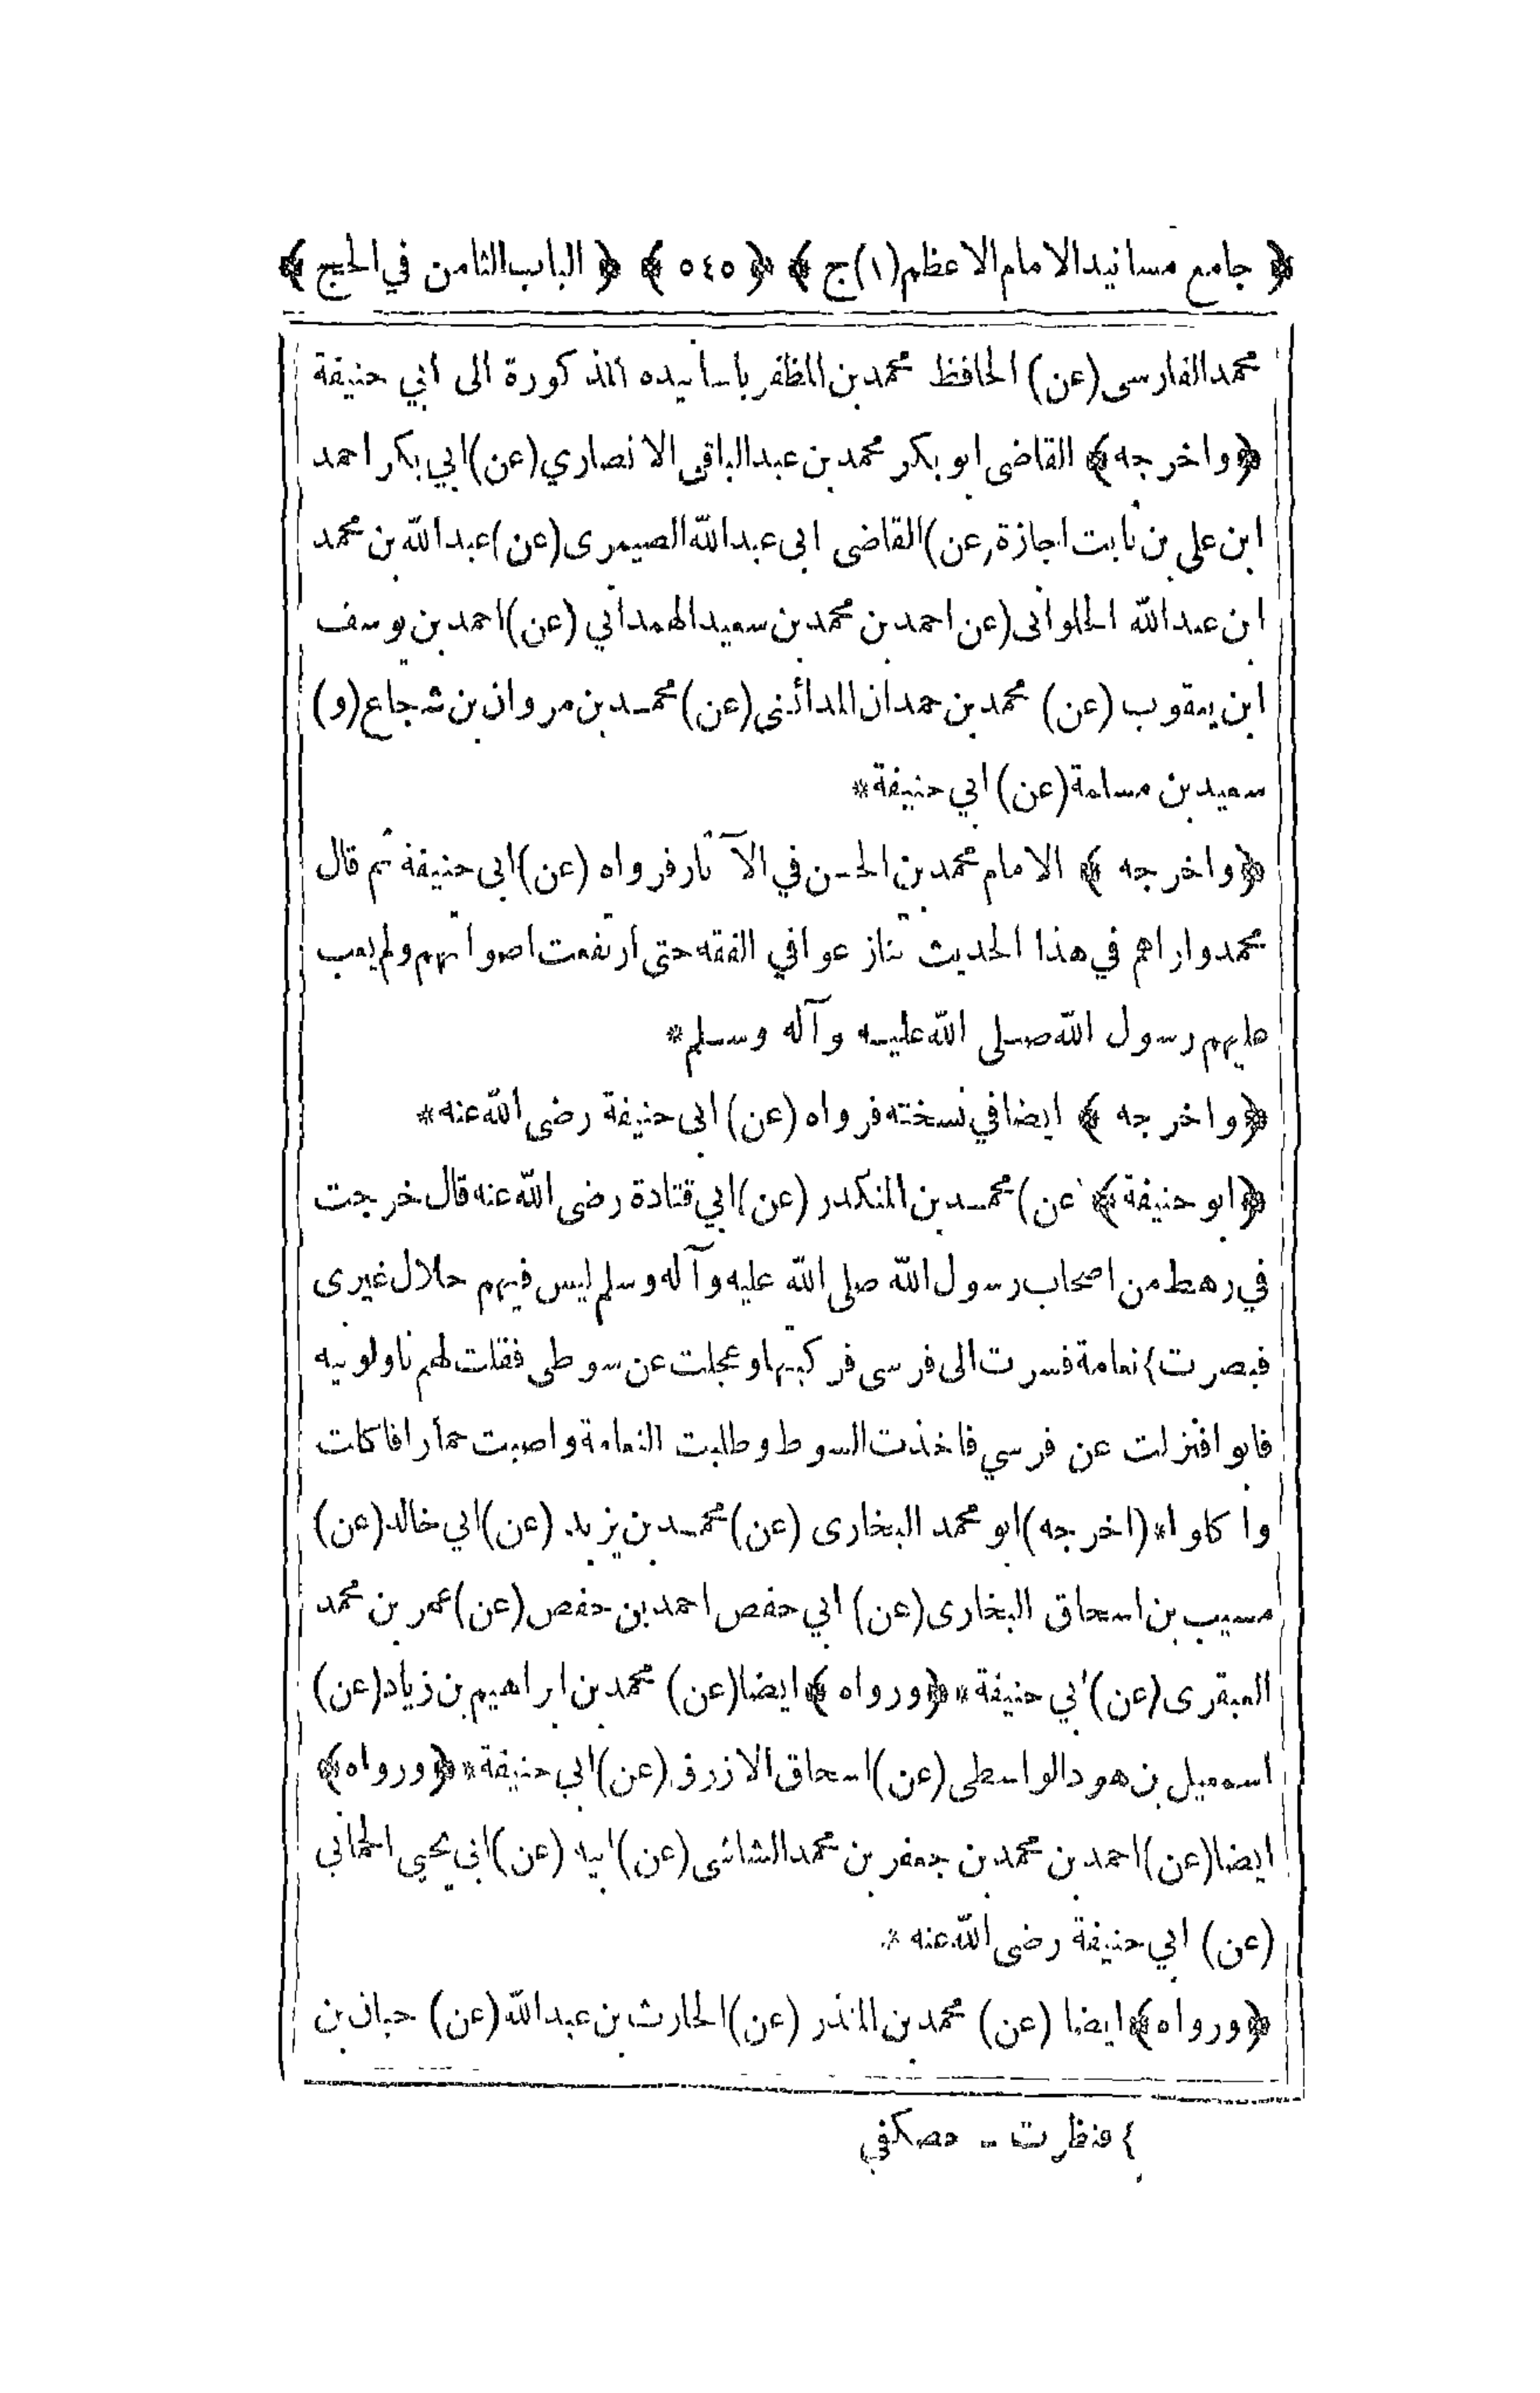 ﴿ جامع مسانيد الامام الاعظم (١) ج ﴾ ﴿ ٥٤٥ ﴾ ﴿ الباب الثامن في الحج ﴾
محمد الفارسى (عن) الحافظ محمد بن المظفر باسانيده المذكورة الى ابي حنيفة
﴿ واخرجه ﴾ القاضى ابو بكر محمد بن عبد الباقى الانصاري (عن) ابي بكر احمد
ابن على بن ثابت اجازة (عن) القاضى ابى عبد الله الصيمرى (عن) عبد الله بن محمد
ابن عبد الله الحلوانى (عن احمد بن محمد بن سعيد الهمدانى (عن) احمد بن يوسف
ابن يعقوب (عن) محمد بن حمدان المدائنى (عن) محمد بن مروان بن شجاع (و)
سعيد بن مسلمة (عن) ابي حنيفة *
﴿ واخرجه ﴾ الامام محمد بن الحسن في الآثار فرواه (عن) ابى حنيفة ثم قال
محمد واراهم في هذا الحديث تنازعوا في الفقه حتى ارتفعت اصواتهم ولم يعب
عليهم رسول الله صلى الله عليه وآله وسلم *
﴿ واخرجه ﴾ ايضا في نسخته فرواه (عن) ابى حنيفة رضى الله عنه *
﴿ ابو حنيفة ﴾ عن) محمد بن المنكدر (عن) ابي قتادة رضى الله عنه قال خرجت
في رهط من اصحاب رسول الله صلى الله عليه وآله وسلم ليس فيهم حلال غيرى
فبصرت } نعامة فسرت الى فرسى فركبتها وعجلت عن سوطى فقلت لهم ناولونيه
فابوا فنزلت عن فرسي فاخذت السوط وطلبت النعامة واصبت حمارا فاكلت
واكلوا * (اخرجه) ابو محمد البخارى (عن) محمد بن يزيد (عن) ابي خالد (عن)
مسيب بن اسحاق البخارى (عن) ابي حفص احمد بن حفص (عن) عمر بن محمد
العبقرى (عن) ابي حنيفة * ﴿ ورواه ﴾ ايضا (عن) محمد بن ابراهيم بن زياد (عن)
اسمعيل بن هود الواسطى (عن) اسحاق الازرق (عن) ابي حنيفة * ﴿ ورواه ﴾
ايضا (عن) احمد بن محمد بن جعفر بن محمد الشاشى (عن) ابيه (عن) ابي يحيى الحمانى
(عن) ابي حنيفة رضى الله عنه *
﴿ ورواه ﴾ ايضا (عن) محمد بن المنذر (عن) الحارث بن عبد الله (عن) حبان بن
} فنظرت ـ حصكفي